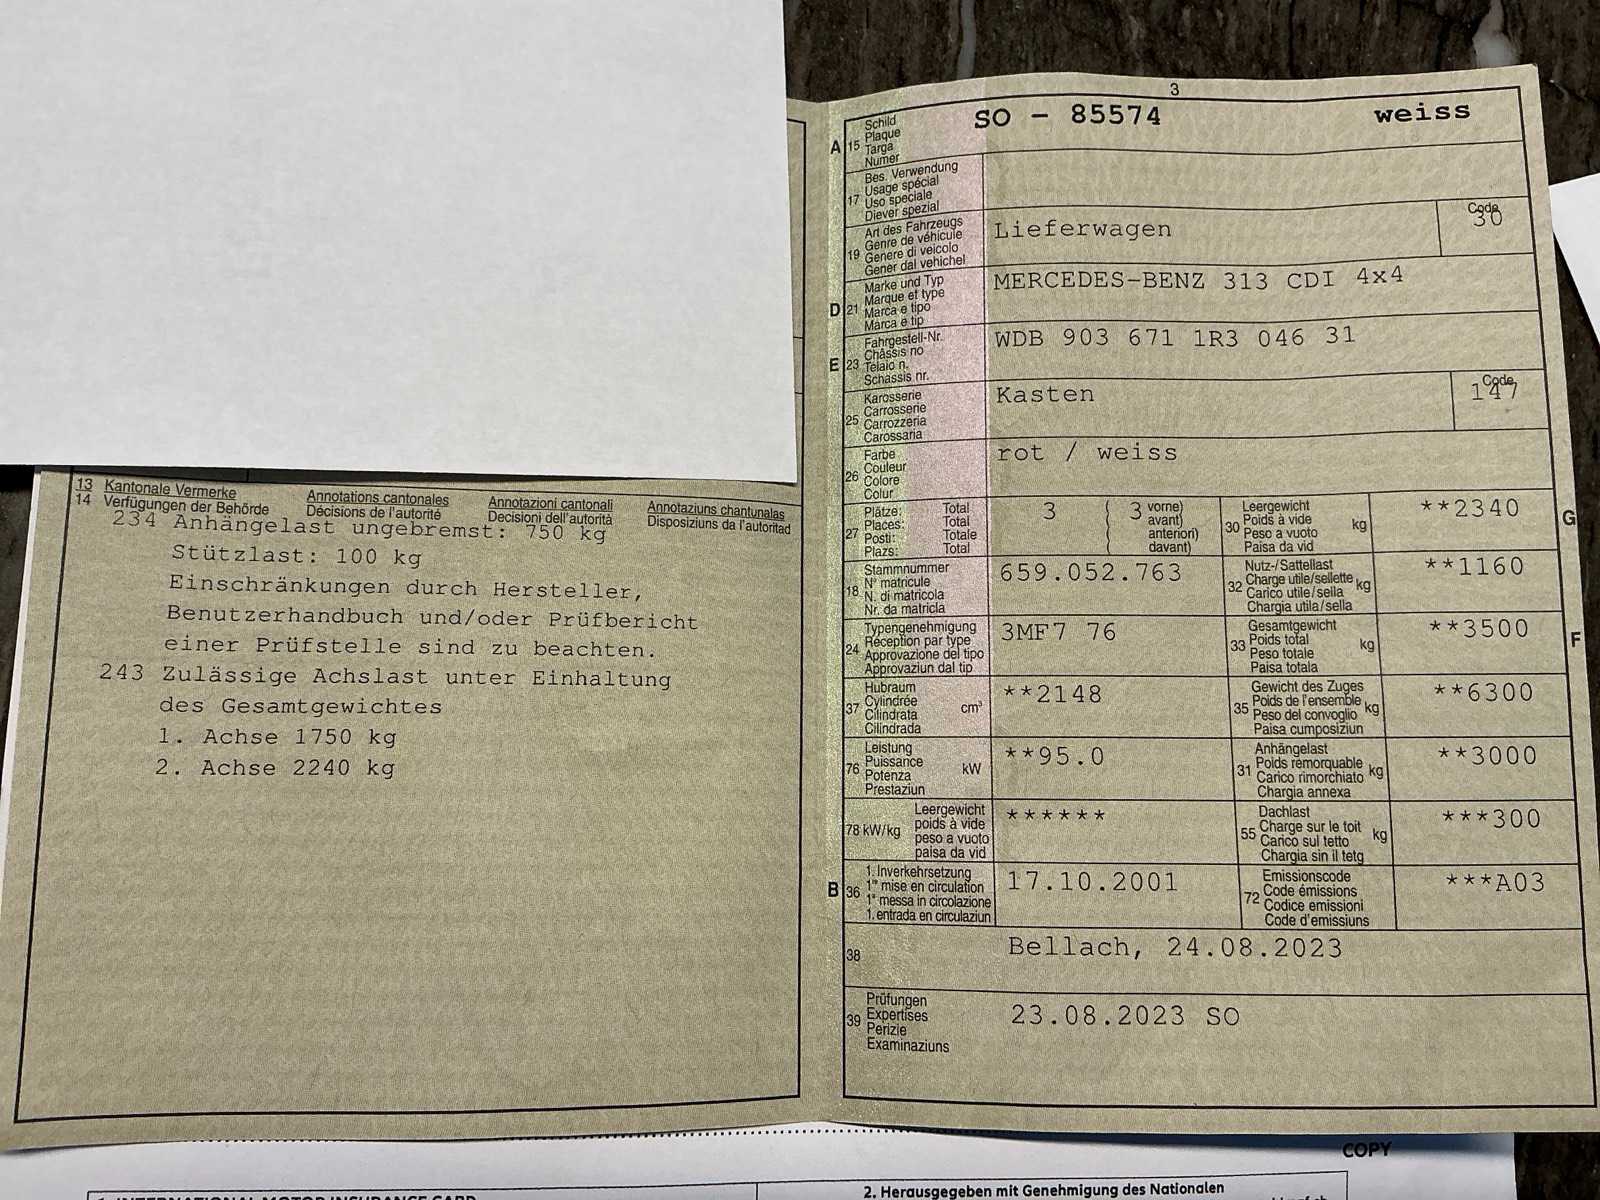 13 Kantonale Vermerke Annotations cantonales Annotazioni cantonali Annotaziuns chantunalas
14 Verfügungen der Behörde Décisions de l'autorité Decisioni dell'autorità Disposiziuns da l'autoritad
234 Anhängelast ungebremst: 750 kg
Stützlast: 100 kg
Einschränkungen durch Hersteller,
Benutzerhandbuch und/oder Prüfbericht
einer Prüfstelle sind zu beachten.
243 Zulässige Achslast unter Einhaltung
des Gesamtgewichtes
1. Achse 1750 kg
2. Achse 2240 kg
3
A 15 Schild
Plaque
Targa
Numer
SO - 85574 weiss
17 Bes. Verwendung
Usage spécial
Uso speciale
Diever spezial
19 Art des Fahrzeugs
Genre de véhicule
Genere di veicolo
Gener dal vehichel
Lieferwagen
Code
30
D 21 Marke und Typ
Marque et type
Marca e tipo
Marca e tip
MERCEDES-BENZ 313 CDI 4x4
E 23 Fahrgestell-Nr.
Châssis no
Telaio n.
Schassis nr.
WDB 903 671 1R3 046 31
25 Karosserie
Carrosserie
Carrozzeria
Carossaria
Kasten
Code
147
26 Farbe
Couleur
Colore
Colur
rot / weiss
27 Plätze: Total
Places: Total
Posti: Totale
Plazs: Total
3 ( 3 vorne)
( avant)
( anteriori)
( davant)
30 Leergewicht
Poids à vide
Peso a vuoto
Paisa da vid
kg
**2340
G
18 Stammnummer
N° matricule
N. di matricola
Nr. da matricla
659.052.763
32 Nutz-/Sattellast
Charge utile/sellette
Carico utile/sella
Chargia utila/sella
kg
**1160
24 Typengenehmigung
Réception par type
Approvazione del tipo
Approvaziun dal tip
3MF7 76
33 Gesamtgewicht
Poids total
Peso totale
Paisa totala
kg
**3500
F
37 Hubraum
Cylindrée
Cilindrata
Cilindrada
cm³
**2148
35 Gewicht des Zuges
Poids de l'ensemble
Peso del convoglio
Paisa cumposiziun
kg
**6300
76 Leistung
Puissance
Potenza
Prestaziun
kW
**95.0
31 Anhängelast
Poids remorquable
Carico rimorchiato
Chargia annexa
kg
**3000
78 kW/kg Leergewicht
poids à vide
peso a vuoto
paisa da vid
******
55 Dachlast
Charge sur le toit
Carico sul tetto
Chargia sin il tetg
kg
***300
B 36 1. Inverkehrsetzung
1re mise en circulation
1a messa in circolazione
1. entrada en circulaziun
17.10.2001
72 Emissionscode
Code émissions
Codice emissioni
Code d'emissiuns
***A03
38 Bellach, 24.08.2023
39 Prüfungen
Expertises
Perizie
Examinaziuns
23.08.2023 SO
COPY
INTERNATIONAL MOTOR INSURANCE CARD
2. Herausgegeben mit Genehmigung des Nationalen